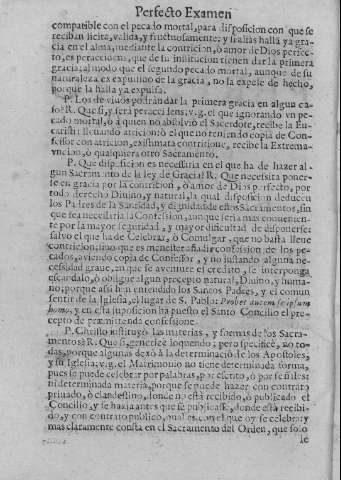 Perfecto Examen
compatible con el pecado mortal, para disposicion con que se
reciban licita, valida, y fructuosamente; y si alias halla ya gra-
cia en el alma, mediante la contricion, ò amor de Dios perfec-
to, es per accidens, que de su institucion tienen dar la primera
gracia; al modo que el segundo pecado mortal, aunque de su
naturaleza es expulsivo de la gracia, no la expele de hecho,
porque la halla ya expulsa.
P. Los de vivos podràn dar la primera gracia en algun ca-
so? R. Que si, y serà per accidens, v.g. el que ignorando un pe-
cado mortal, ò à quien no absolviò el Sacerdote, recibe la Eu-
caristia llevando atricion; ò el que no teniendo copia de Con-
fessor con atricion, existimata contritione, recibe la Extrema-
uncion, ò qualquiera otro Sacramento.
P. Que disposicion es necessaria en el que ha de hazer al-
gun Sacramento de la ley de Gracia? R. Que necessita poner-
se en gracia por la contricion, ò amor de Dios perfecto, por
todo derecho Divino, y natural, la qual disposicion deducen
los Padres de la Santidad, y dignidad de estos Sacramentos, sin
que sea necessaria la Confession, aunque seria mas convenien-
te por la mayor seguridad, y mayor dificultad de disponerse:
salvo el que ha de Celebrar, ò Comulgar, que no basta lleve
contricion, sino que es menester añadir confession de los pe-
cados, aviendo copia de Confessor, y no instando alguna ne-
cessidad grave, en que se aventure el credito, se interponga
escandalo, ò obligue algun precepto natural, Divino, y huma-
no; porque assi han entendido los Santos Padres, y el comun
sentir de la Iglesia, el lugar de S. Pablo: Probet autem se ipsum
homo, y en esta suposicion ha puesto el Santo Concilio el pre-
cepto de præmittenda confessione.
P. Christo instituyò las materias, y formas de los Sacra-
mentos? R. Que si, genericè loquendo; pero specificè, no to-
das, porque algunas dexò à la determinacion de los Apostoles,
y su Iglesia; v.g. el Matrimonio no tiene determinada forma,
pues se puede celebrar por palabras, por escrito, ò por señales:
ni determinada materia, porque se puede hazer con contrato
privado, ò clandestino, donde no està recibido, ò publicado el
Concilio, y se hazia antes que se publicasse, donde està recibi-
do, y con contrato publico, qual es con el que oy se celebra; y
mas claramente consta en el Sacramento del Orden, que solo
se